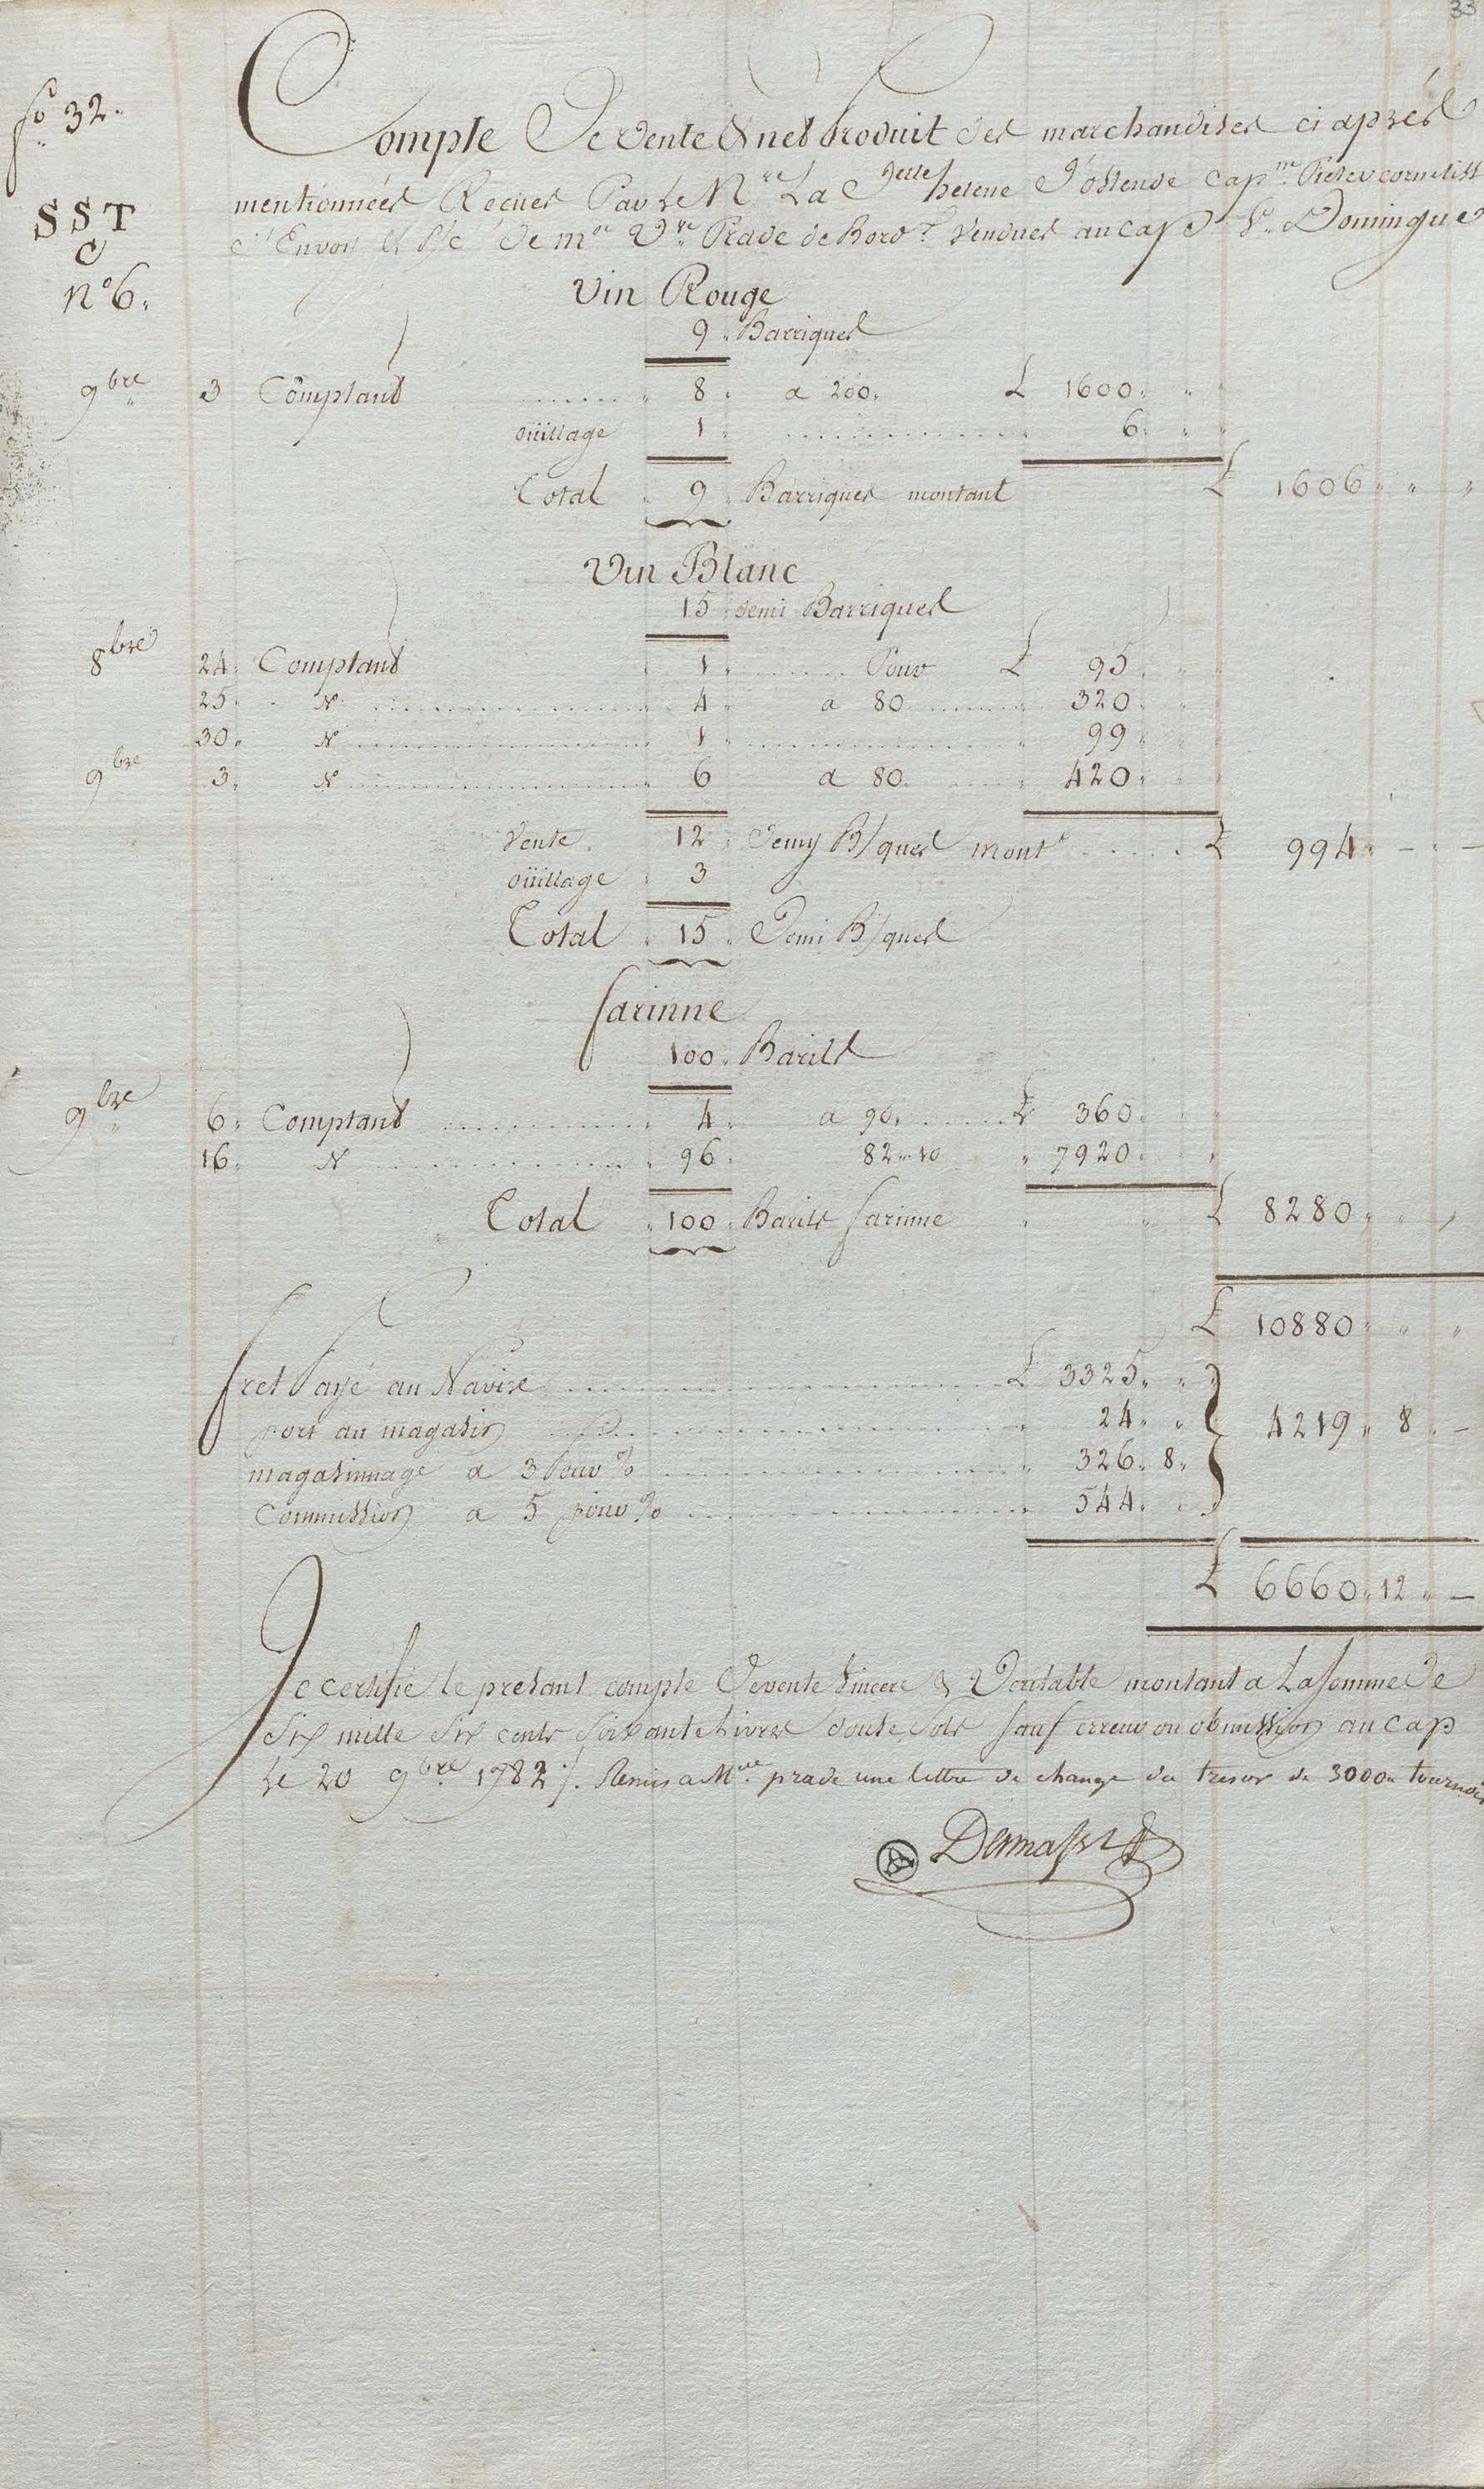 33
fo 32.
Compte De vente & net Produit des marchandises ci aprés
mentionnées Recues Par Le Nre La Delle helene D'ostende Capne Pieter cornelis
SST
d'Envoy & P/c de mr Vve Prade de Bord. Vendues au Cap St Domingue
C
No 6.
Vin Rouge
9 Barriques
9bre 3 Comptant ...... 8 a 200. £ 1600. "
oüillage 1 ............ 6. " "
Total 9 Barriques montant £ 1606 " "
Vin Blanc
15 demi Barriques
8bre 24. Comptant 1 ...... Pour £ 95.
25. N ............ 4 a 80 ...... 320.
30. N ............ 1 ............ 99
9bre 3. N ............ 6 a 80 ...... 420.
Vente 12 Demy B/ques montt ...... £ 994. - -
oüillage 3
Total 15 Demi B/ques
farinne
100. Barils
9bre 6. Comptant ............ 4. a 90. ...... £ 360.
16. N ............ 96. 82 " 10 " 7920.
Total 100 Barils farinne £ 8280 " "
£ 10880 " "
fret Payé au Navire ............ £ 3325. "
port au magasin ............ 24. " 4219. 8. -
magasinnage a 3 Pour % ............ 326. 8.
Commission a 5 pour % ............ 544. "
£ 6660. 12 " -
Je certifie le presant compte De vente Sincere & Veritable montant a La somme De
Six mille Six cents soixante Livres douse sols sauf erreur ou obmission au Cap
Le 20 9bre 1782 /. Remis a Mme prade une lettre de change du tresor de 3000 tournois